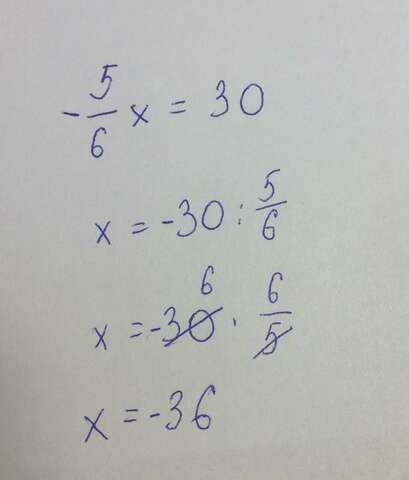 -5/6 x = 30
x = -30 : 5/6
x = -30 6 · 6/5
x = -36